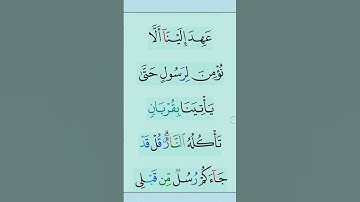 عَهِدَ إِلَيْنَآ أَلَّا
نُؤْمِنَ لِرَسُولٍ حَتَّىٰ
يَأْتِيَنَا بِقُرْبَانٍ
تَأْكُلُهُ ٱلنَّارُ ۗ قُلْ قَدْ
جَآءَكُمْ رُسُلٌ مِّن قَبْلِى